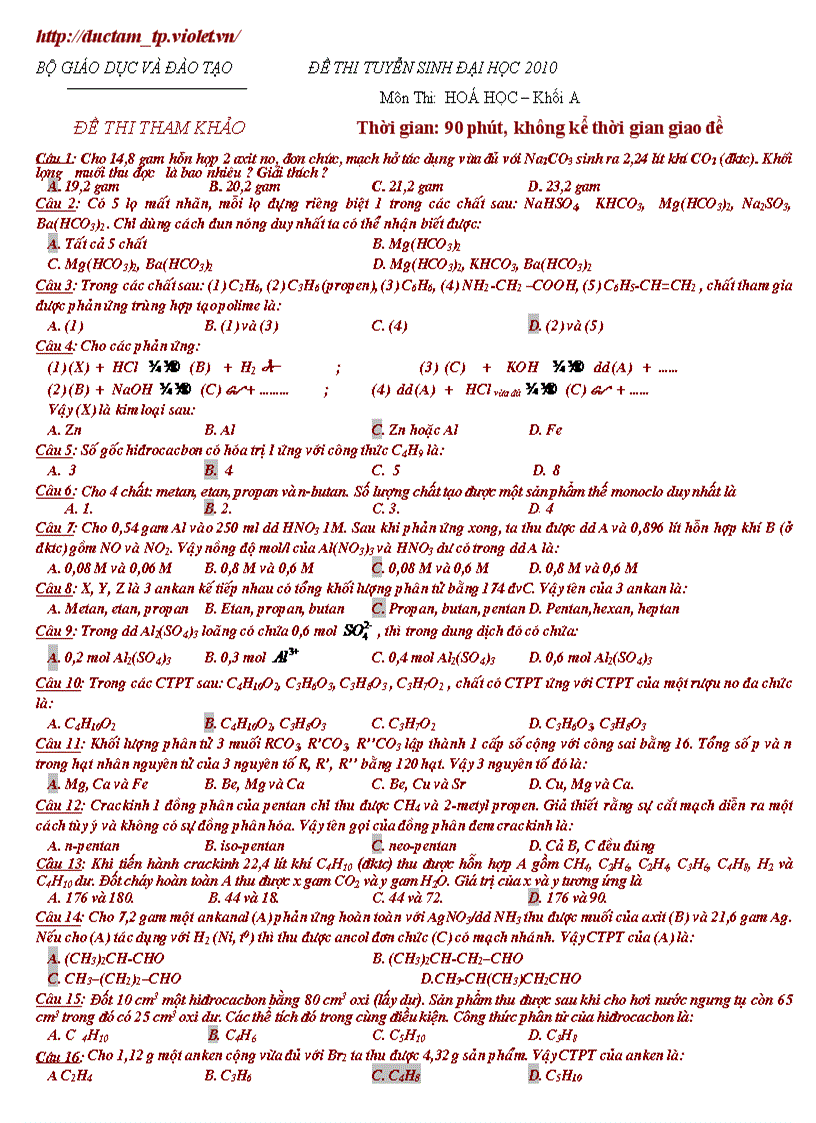 http://ductam_tp.violet.vn/
BỘ GIÁO DỤC VÀ ĐÀO TẠO ĐỀ THI TUYỂN SINH ĐẠI HỌC 2010
Môn Thi: HOÁ HỌC – Khối A
ĐỀ THI THAM KHẢO Thời gian: 90 phút, không kể thời gian giao đề
Câu 1: Cho 14,8 gam hỗn hợp 2 axit no, đơn chức, mạch hở tác dụng vừa đủ với Na2CO3 sinh ra 2,24 lít khí CO2 (đktc). Khối
lượng muối thu được là bao nhiêu ? Giải thích ?
A. 19,2 gam B. 20,2 gam C. 21,2 gam D. 23,2 gam
Câu 2: Có 5 lọ mất nhãn, mỗi lọ đựng riêng biệt 1 trong các chất sau: NaHSO4, KHCO3, Mg(HCO3)2, Na2SO3,
Ba(HCO3)2. Chỉ dùng cách đun nóng duy nhất ta có thể nhận biết được:
A. Tất cả 5 chất B. Mg(HCO3)2
C. Mg(HCO3)2, Ba(HCO3)2 D. Mg(HCO3)2, KHCO3, Ba(HCO3)2
Câu 3: Trong các chất sau: (1) C2H6, (2) C3H6 (propen), (3) C6H6, (4) NH2 -CH2 –COOH, (5) C6H5-CH=CH2 , chất tham gia
được phản ứng trùng hợp tạo polime là:
A. (1) B. (1) và (3) C. (4) D. (2) và (5)
Câu 4: Cho các phản ứng:
(1) (X) + HCl (B) + H2 ; (3) (C) + KOH dd(A) + ......
(2) (B) + NaOH (C) + ......... ; (4) dd(A) + HCl vừa đủ (C) + ......
Vậy (X) là kim loại sau:
A. Zn B. Al C. Zn hoặc Al D. Fe
Câu 5: Số gốc hiđrocacbon có hóa trị I ứng với công thức C4H9 là:
A. 3 B. 4 C. 5 D. 8
Câu 6: Cho 4 chất: metan, etan, propan và n-butan. Số lượng chất tạo được một sản phẩm thế monoclo duy nhất là
A. 1. B. 2. C. 3. D. 4
Câu 7: Cho 0,54 gam Al vào 250 ml dd HNO3 1M. Sau khi phản ứng xong, ta thu được dd A và 0,896 lít hỗn hợp khí B (ở
đktc) gồm NO và NO2. Vậy nồng độ mol/l của Al(NO3)3 và HNO3 dư có trong dd A là:
A. 0,08 M và 0,06 M B. 0,8 M và 0,6 M C. 0,08 M và 0,6 M D. 0,8 M và 0,6 M
Câu 8: X, Y, Z là 3 ankan kế tiếp nhau có tổng khối lượng phân tử bằng 174 đvC. Vậy tên của 3 ankan là:
A. Metan, etan, propan B. Etan, propan, butan C. Propan, butan, pentan D. Pentan,hexan, heptan
Câu 9: Trong dd Al2(SO4)3 loãng có chứa 0,6 mol SO4^2- , thì trong dung dịch đó có chứa:
A. 0,2 mol Al2(SO4)3 B. 0,3 mol Al^3+ C. 0,4 mol Al2(SO4)3 D. 0,6 mol Al2(SO4)3
Câu 10: Trong các CTPT sau: C4H10O2, C3H6O3, C3H8O3 , C3H7O2 , chất có CTPT ứng với CTPT của một rượu no đa chức
là:
A. C4H10O2 B. C4H10O2, C3H8O3 C. C3H7O2 D. C3H6O3, C3H8O3
Câu 11: Khối lượng phân tử 3 muối RCO3, R’CO3, R’’CO3 lập thành 1 cấp số cộng với công sai bằng 16. Tổng số p và n
trong hạt nhân nguyên tử của 3 nguyên tố R, R’, R’’ bằng 120 hạt. Vậy 3 nguyên tố đó là:
A. Mg, Ca và Fe B. Be, Mg và Ca C. Be, Cu và Sr D. Cu, Mg và Ca.
Câu 12: Crackinh 1 đồng phân của pentan chỉ thu được CH4 và 2-metyl propen. Giả thiết rằng sự cắt mạch diễn ra một
cách tùy ý và không có sự đồng phân hóa. Vậy tên gọi của đồng phân đem crackinh là:
A. n-pentan B. iso-pentan C. neo-pentan D. Cả B, C đều đúng
Câu 13: Khi tiến hành crackinh 22,4 lít khí C4H10 (đktc) thu được hỗn hợp A gồm CH4, C2H6, C2H4, C3H6, C4H8, H2 và
C4H10 dư. Đốt cháy hoàn toàn A thu được x gam CO2 và y gam H2O. Giá trị của x và y tương ứng là
A. 176 và 180. B. 44 và 18. C. 44 và 72. D. 176 và 90.
Câu 14: Cho 7,2 gam một ankanal (A) phản ứng hoàn toàn với AgNO3/dd NH3 thu được muối của axit (B) và 21,6 gam Ag.
Nếu cho (A) tác dụng với H2 (Ni, t0) thì thu được ancol đơn chức (C) có mạch nhánh. Vậy CTPT của (A) là:
A. (CH3)2CH-CHO B. (CH3)2CH-CH2–CHO
C. CH3–(CH2)2–CHO D.CH3-CH(CH3)CH2CHO
Câu 15: Đốt 10 cm3 một hiđrocacbon bằng 80 cm3 oxi (lấy dư). Sản phẩm thu được sau khi cho hơi nước ngưng tụ còn 65
cm3 trong đó có 25 cm3 oxi dư. Các thể tích đó trong cùng điều kiện. Công thức phân tử của hiđrocacbon là:
A. C 4H10 B. C4H6 C. C5H10 D. C3H8
Câu 16: Cho 1,12 g một anken cộng vừa đủ với Br2 ta thu được 4,32 g sản phẩm. Vậy CTPT của anken là:
A C2H4 B. C3H6 C. C4H8 D. C5H10